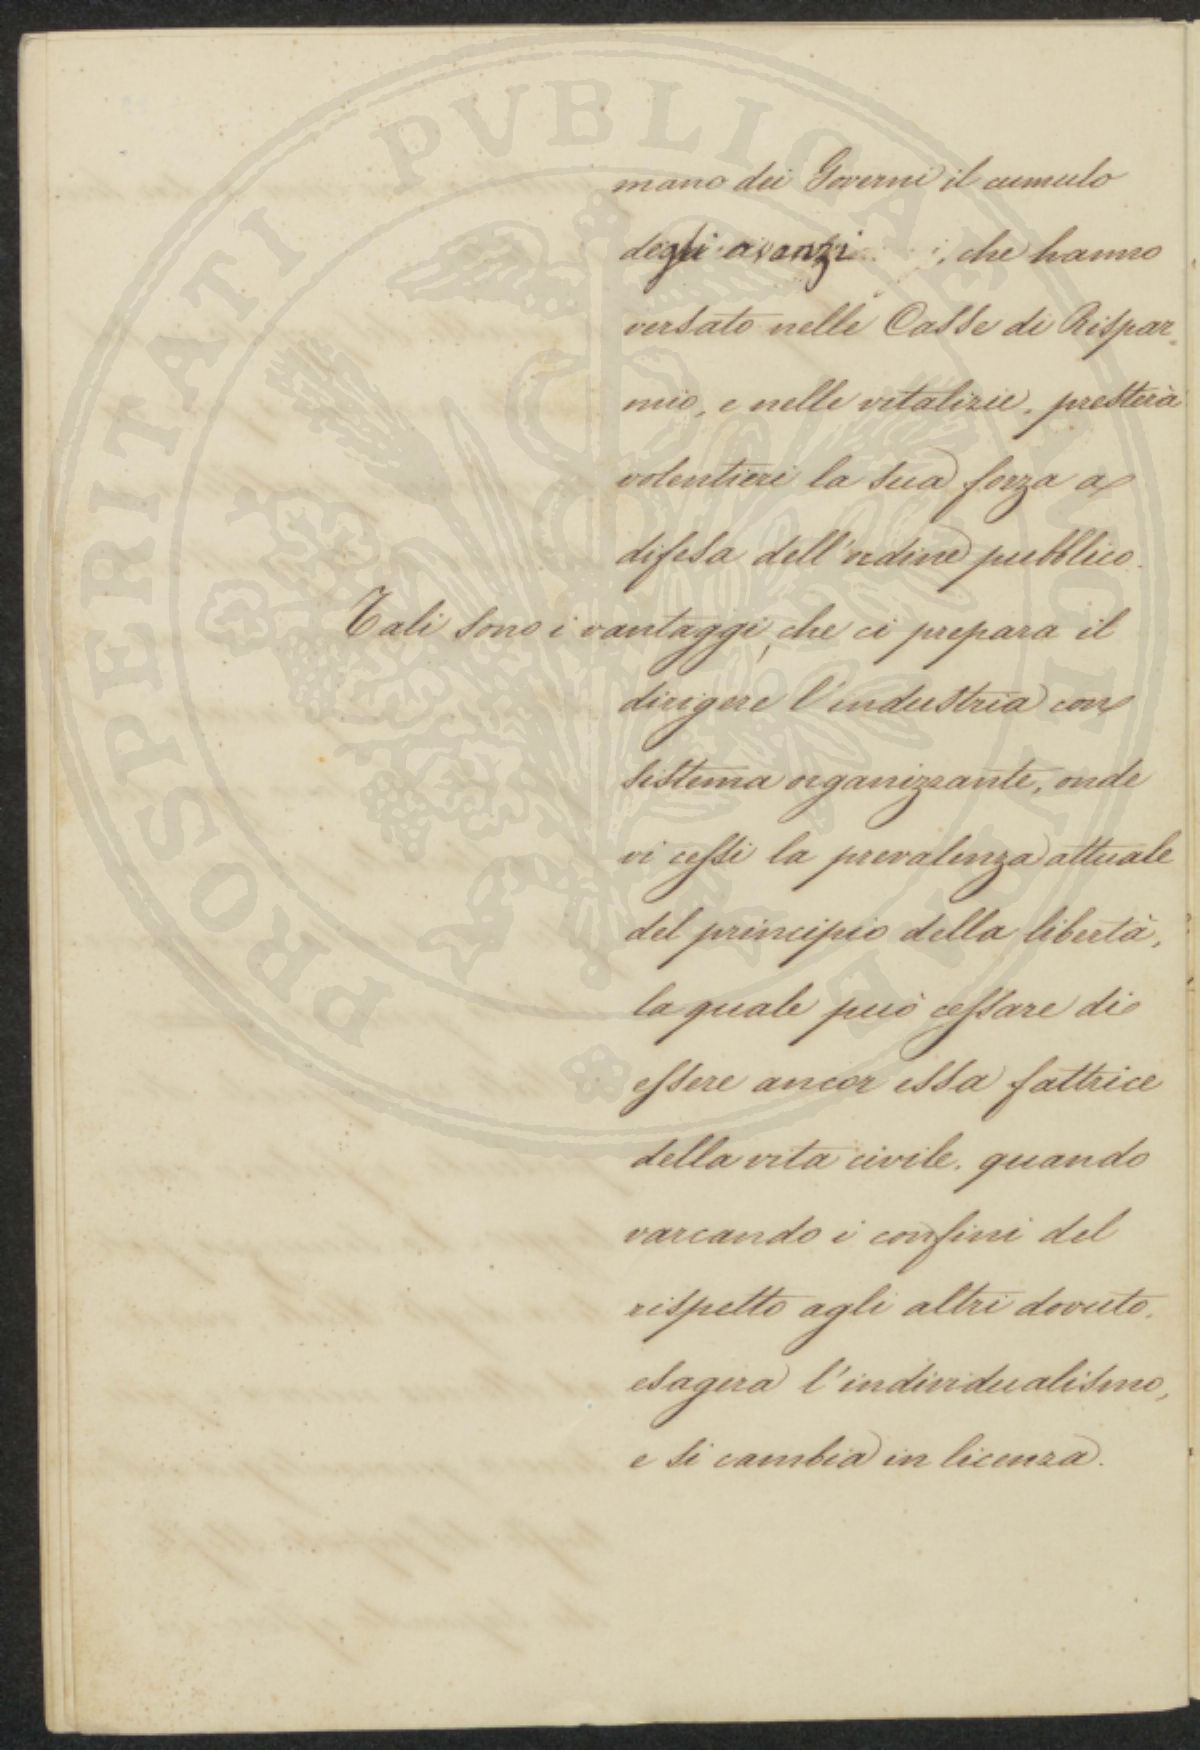 mano dei Governi il cumulo
degli avanzi, che hanno
versato nelle Casse di Rispar-
mio, e nelle vitalizie, presterà
volentieri la sua forza a
difesa dell'ordine pubblico.
Tali sono i vantaggi, che ci prepara il
dirigere l'industria con
sistema organizzante, onde
vi cessi la prevalenza attuale
del principio della libertà,
la quale può cessare di
essere ancor essa fattrice
della vita civile, quando
varcando i confini del
rispetto agli altri dovuto,
esagera l'individualismo,
e si cambia in licenza.
PROSPERITATI PVBLICAE